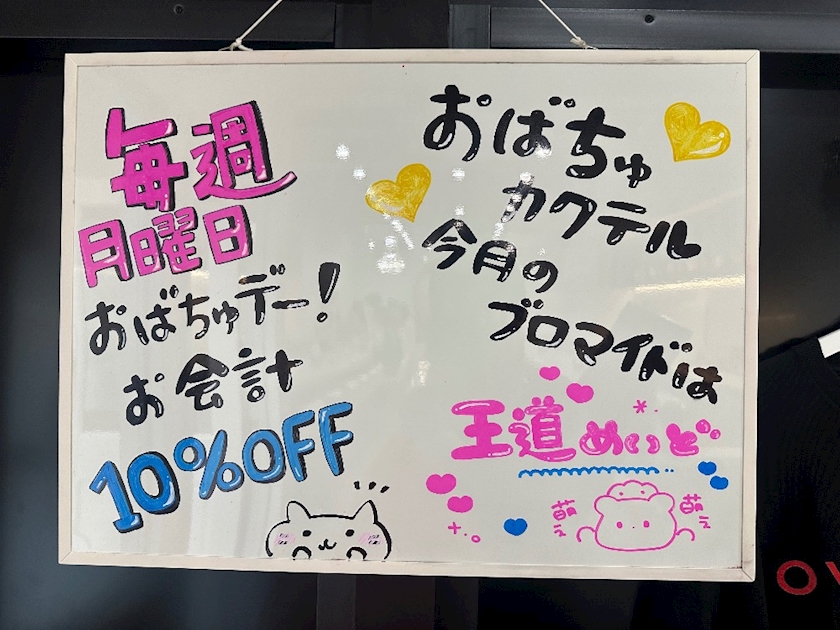 毎週
月曜日
おばちゅデー!
お会計
10%OFF
おばちゅ
カクテル
今月の
ブロマイドは
王道めいど
萌え
萌え